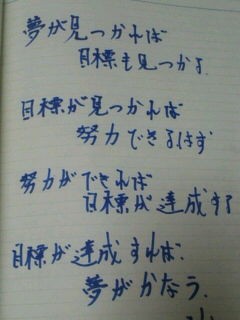 夢が見つかれば
目標も見つかる
目標が見つかれば
努力できるはず
努力ができれば
目標が達成する
目標が達成すれば
夢がかなう.